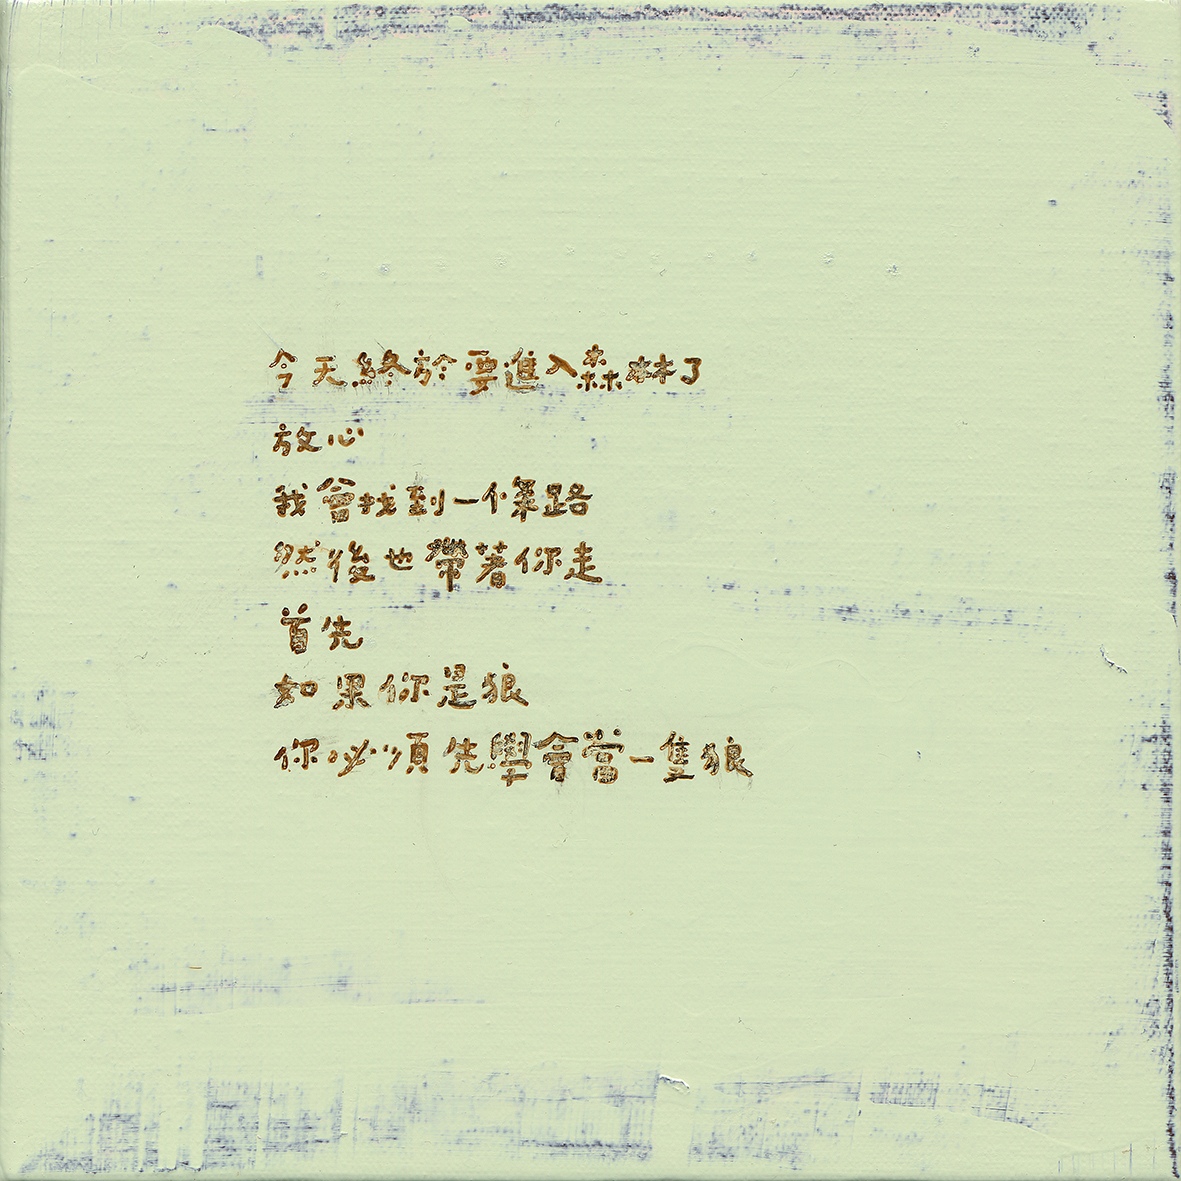 今天終於要進入森林了
放心
我會找到一條路
然後也帶著你走
首先
如果你是狼
你必須先學會當一隻狼